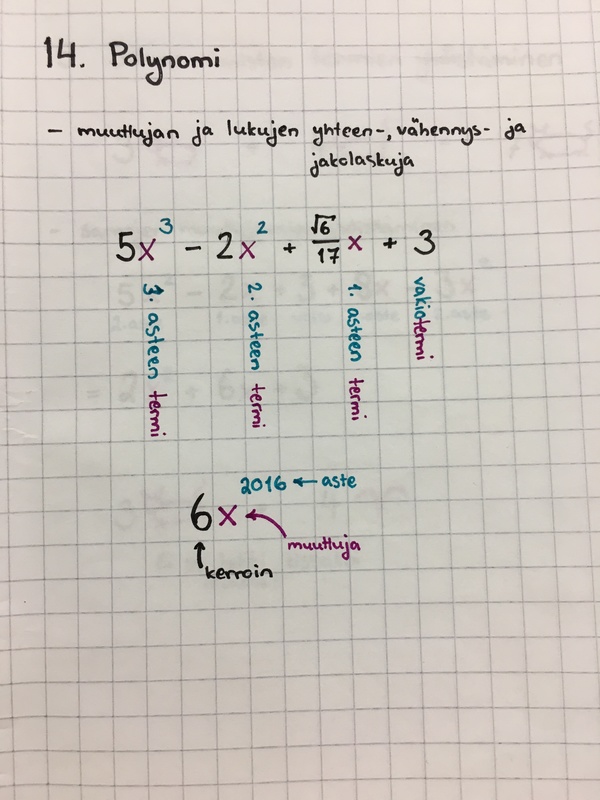 14. Polynomi
– muuttujan ja lukujen yhteen-, vähennys- ja
jakolaskuja
5x³ – 2x² + √6/17 x + 3
3. asteen termi
2. asteen termi
1. asteen termi
vakiotermi
2016 ← aste
6x
muuttuja
kerroin